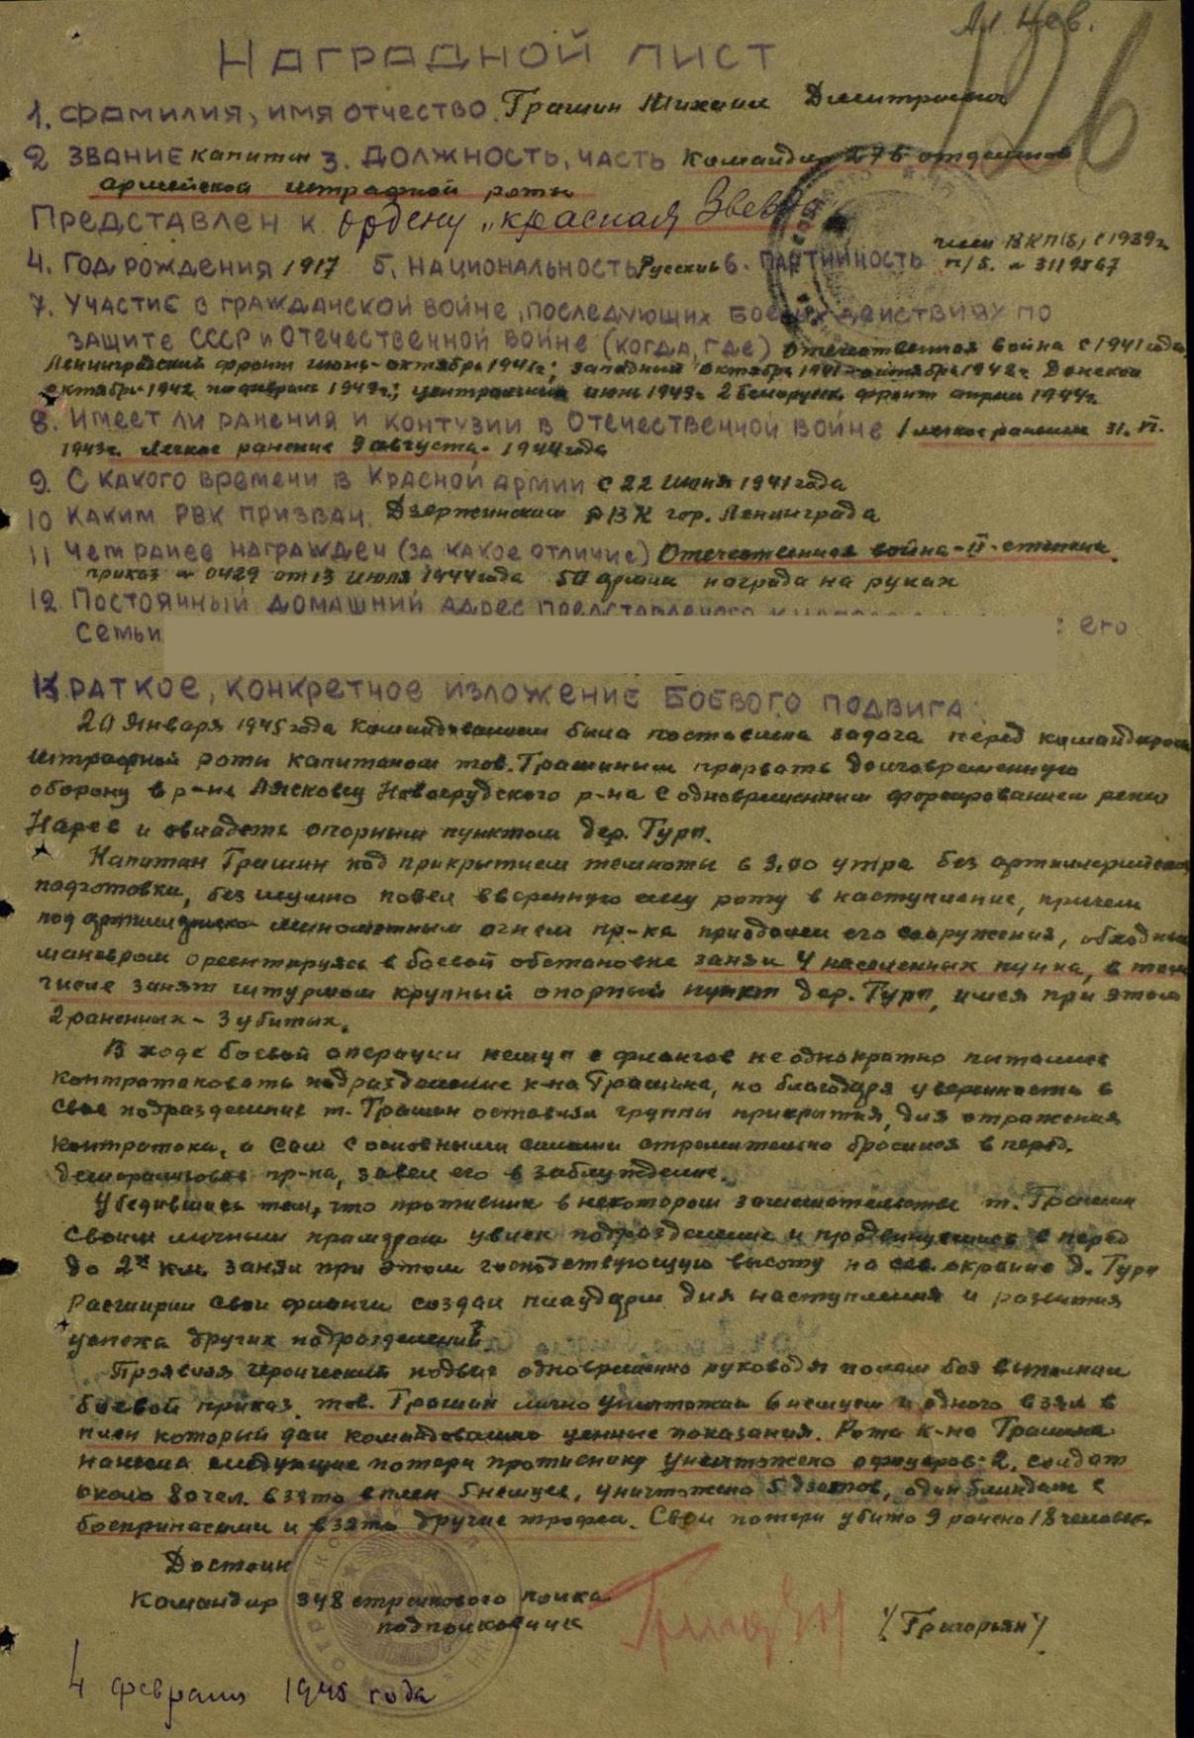 Наградной лист
1. Фамилия, имя отчество. Грашин Михаил Дмитриевич
2 Звание капитан 3. Должность, часть командир 275 отдельной
армейской штрафной роты
Представлен к ордену „красная Звезда"
член ВКП(б) с 1939 г.
4. Год рождения 1917 5. Национальность Русский 6. Партийность п/б. №
7. Участие в гражданской войне, последующих боевых действиях по
защите СССР и Отечественной войне (когда, где) Отечественная война с 1941 года
Ленинградский фронт июнь-октябрь 1941 г; западный октябрь 1941 - 1942 г. Донской
октябрь 1942 по февраль 1943 г.; центральный июнь 1943 г. 2 Белорусск. фронт апрель 1944 г.
8. Имеет ли ранения и контузии в Отечественной войне 1 легкое ранение 31. VI.
1943 г. Легкое ранение 9 августа - 1944 года
9. С какого времени в Красной Армии с 22 июня 1941 года
10 Каким РВК призван. Дзержинским РВК гор. Ленинграда
11 Чем ранее награжден (за какое отличие) Отечественная война - II - степени.
приказ № 0429 от 13 июля 1944 года 50 армии награда на руках
12 Постоянный домашний адрес представленого к : его
семьи
13. Краткое, конкретное изложение боевого подвига
20 Января 1945 года командованием была поставлена задача перед командиром
штрафной роты капитаном тов. Грашиным прорвать долговременную
оборону в р-не с одновременным форсированием реки
Нарев и овладеть опорным пунктом дер. Гура.
Капитан Грашин под прикрытием темноты в 3.00 утра без артиллерийской
подготовки, безшумно повел вверенную ему роту в наступление, причем
под минометным огнем пр-ка приодолел его сооружения, обходным
маневром ореентируясь в боевой обстановке занял 4 населенных пункта, в том
числе занят штурмом крупный опорный пункт дер. Гура, имея при этом
2 раненных - 3 убитых.
В ходе боевой операции немцы с флангов не однократно пытались
контратаковать подразделение к-на Грашина, но благодаря уверенности в
свое подразделение т. Грашин оставлял группы прикрытия, для отражения
контратаки, а сам с основными силами стремительно бросился в перед.
пр-ка, завел его в заблуждение.
Убедившись тем, что противник в некотором замешательстве т. Грашин
своим личным примером увлек подразделение и продвинувшись в перед
до 2х км. занял при этом господствующую высоту на сев. окраине д. Гура
Расширил свои фланги создал плацдарм для наступления и развития
успеха других подразделений.
Проявляя героический подвиг одновременно руководя полем боя выполнил
боевой приказ. тов. Грашин лично уничтожил 6 немцев и одного взял в
плен который дал командованию ценные показания. Рота к-на Грашина
нанесла следующие потери противнику уничтожено офицеров-2, солдат
около 80 чел. взято в плен 5 немцев, уничтожено 5 дзотов, один блиндаж с
боеприпасами и взято другие трофеи. Свои потери убито 9 ранено 18 человек.
Достоин
Командир 348 стрелкового полка
подполковник /Григорьян/
4 февраля 1945 года